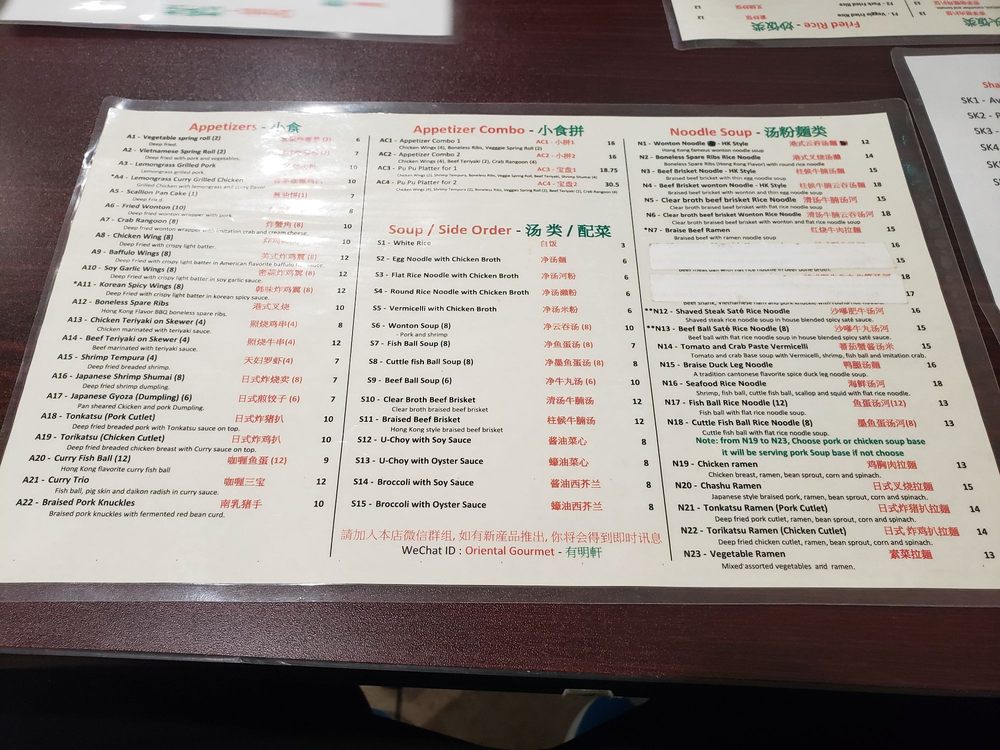 Fried Rice - 炒饭类
Appetizers - 小食
A1 - Vegetable spring roll (2) 6
Deep fried.
A2 - Vietnamese Spring Roll (2) 7
Deep fried with pork and vegetables.
A3 - Lemongrass Grilled Pork
Lemongrass grilled pork.
*A4 - Lemongrass Curry Grilled Chicken
Grilled Chicken with lemongrass and curry flavor
A5 - Scallion Pan Cake (1) 葱油饼(1) 7
Deep Fried.
A6 - Fried Wonton (10) 8
Deep fried wonton wrapper with pork
A7 - Crab Rangoon (8) 炸蟹角 (8) 10
Deep fried wonton wrapper with imitation crab and cream cheese.
A8 - Chicken Wing (8) 10
Deep Fried with crispy light batter.
A9 - Baffulo Wings (8) 美式炸鸡翼 (8) 12
Deep Fried with crispy light batter in American flavorite baffulo sauce.
A10 - Soy Garlic Wings (8) 密蒜炸鸡翼 (8) 12
Deep Fried with crispy light batter in soy garlic sauce.
*A11 - Korean Spicy Wings (8) 韩味炸鸡翼 (8) 12
Deep Fried with crispy light batter in korean spicy sauce.
A12 - Boneless Spare Ribs 港式叉烧 10
Hong Kong Flavor BBQ boneless spare ribs.
A13 - Chicken Teriyaki on Skewer (4) 照烧鸡串(4) 8
Chicken marinated with teriyaki sauce.
A14 - Beef Teriyaki on Skewer (4) 照烧牛串(4) 12
Beef marinated with teriyaki sauce.
A15 - Shrimp Tempura (4) 天妇罗虾(4) 7
Deep fried breaded shrimp.
A16 - Japanese Shrimp Shumai (8) 日式炸烧卖 (8) 7
Deep fried shrimp dumpling.
A17 - Japanese Gyoza (Dumpling) (6) 日式煎饺子 (6) 7
Pan sheared Ckicken and pork Dumpling.
A18 - Tonkatsu (Pork Cutlet) 日式炸猪扒 10
Deep fried breaded pork with Tonkatsu sauce on top.
A19 - Torikatsu (Chicken Cutlet) 日式炸鸡扒 10
Deep fried breaded chicken breast with Curry sauce on top.
A20 - Curry Fish Ball (12) 咖喱鱼蛋 (12) 9
Hong Kong flavorite curry fish ball
A21 - Curry Trio 咖喱三宝 12
Fish ball, pig skin and daikon radish in curry sauce.
A22 - Braised Pork Knuckles 南乳猪手 10
Braised pork knuckles with fermented red bean curd.
Appetizer Combo - 小食拼
AC1 - Appetizer Combo 1 AC1 - 小拼1 16
Chicken Wings (2), Boneless Ribs, Vegggie Spring Roll (2)
AC2 - Appetizer Combo 2 AC2 - 小拼2 16
Chicken Wings (4), Beef Teriyaki (2), Crab Rangoon (4)
AC3 - Pu Pu Platter for 1 AC3 - 宝盘1 18.75
AC4 - Pu Pu Platter for 2 AC4 - 宝盘2 30.5
Soup / Side Order - 汤 类 / 配菜
S1 - White Rice 白饭 3
S2 - Egg Noodle with Chicken Broth 净汤麵 6
S3 - Flat Rice Noodle with Chicken Broth 净汤河粉 6
S4 - Round Rice Noodle with Chicken Broth 净汤瀬粉 6
S5 - Vermicelli with Chicken Broth 净汤米粉 6
S6 - Wonton Soup (8) 净云吞汤 (8) 10
- Pork and shrimp
S7 - Fish Ball Soup (8) 净鱼蛋汤 (8) 7
S8 - Cuttle fish Ball Soup (8) 净墨鱼蛋汤 (8) 8
S9 - Beef Ball Soup (6) 净牛丸汤 (6) 10
S10 - Clear Broth Beef Brisket 清汤牛腩汤 12
Clear broth braised beef brisket
S11 - Braised Beef Brisket 柱候牛腩汤 12
Hong Kong style braised beef brisket
S12 - U-Choy with Soy Sauce 酱油菜心 8
S13 - U-Choy with Oyster Sauce 蠔油菜心 8
S14 - Broccoli with Soy Sauce 酱油西芥兰 8
S15 - Broccoli with Oyster Sauce 蠔油西芥兰 8
請加入本店微信群组, 如有新産品推出, 你将会得到即时讯息
WeChat ID : Oriental Gourmet - 有明軒
Noodle Soup - 汤粉麵类
N1 - Wonton Noodle - HK Style 港式云吞汤麵 12
Hong Kong famous wonton noodle soup
N2 - Boneless Spare Ribs Rice Noodle 港式叉烧汤粉 14
Boneless Spare Ribs (Hong Kong Flavor) with round rice noodle
N3 - Beef Brisket Noodle - HK Style 柱候牛腩汤麵 15
Braised beef brisket with thin egg noodle soup
N4 - Beef Brisket wonton Noodle - HK Style 柱候牛腩云吞汤麵 18
Braised beef brisket with wonton and thin egg noodle soup
N5 - Clear broth beef brisket Rice Noodle 清汤牛腩汤河 15
Clear broth braised beef brisket with flat rice noodle soup
N6 - Clear broth beef brisket Wonton Rice Noodle 清汤牛腩云吞汤河 18
Clear broth braised beef brisket wonton with flat rice noodle soup
*N7 - Braise Beef Ramen 红烧牛肉拉麵 15
Braised beef with ramen noodle soup
16
15
18
17
**N12 - Shaved Steak Saté Rice Noodle 沙嗲肥牛汤河 16
Shaved steak rice noodle soup in house blended spicy saté sauce.
**N13 - Beef Ball Saté Rice Noodle (8) 沙嗲牛丸汤河 15
Beef ball with flat rice noodle soup in house blended spicy saté sauce.
N14 - Tomato and Crab Paste Vermicelli 蕃茄蟹酱汤米 15
Tomato and crab Base soup with Vermicelli, shrimp, fish ball and imitation crab.
N15 - Braise Duck Leg Noodle 鸭腿汤麵 16
A tradition cantonese flavorite spice duck leg noodle soup.
N16 - Seafood Rice Noodle 海鲜汤河 18
Shrimp, fish ball, cuttle fish ball, scallop and squid with flat rice noodle
N17 - Fish Ball Rice Noodle (12) 鱼蛋汤河(12) 13
Fish ball with flat rice noodle soup.
N18 - Cuttle Fish Ball Rice Noodle (8) 墨鱼蛋汤河(8) 13
Cuttle fish ball with flat rice noodle soup.
Note: from N19 to N23, Choose pork or chicken soup base
it will be serving pork Soup base if not choose
N19 - Chicken ramen 鸡胸肉拉麵 13
Chicken breast, ramen, bean sprout, corn and spinach.
N20 - Chashu Ramen 日式叉烧拉麵 15
Japanese style braised pork, ramen, bean sprout, corn and spinach.
N21 - Tonkatsu Ramen (Pork Cutlet) 日式炸猪扒拉麵 14
Deep fried pork cutlet, ramen, bean sprout, corn and spinach.
N22 - Torikatsu Ramen (Chicken Cutlet) 日式 炸鸡扒拉麵 14
Deep fried chicken cutlet, ramen, bean sprout, corn and spinach.
N23 - Vegetable Ramen 素菜拉麵 13
Mixed assorted vegetables and ramen.
SK1 -
SK2 -
SK3 -
SK4
SK
SK